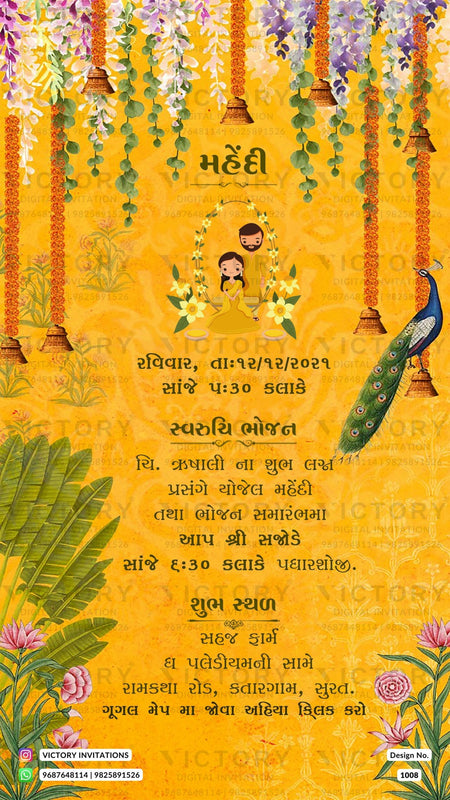 મહેંદી
રવિવાર, તાઃ૧૨/૧૨/૨૦૨૧
સાંજે ૫:૩૦ કલાકે
સ્વરુચિ ભોજન
ચિ. ઋષાલી ના શુભ લગ્ન
પ્રસંગે યોજેલ મહેંદી
તથા ભોજન સમારંભમા
આપ શ્રી સજોડે
સાંજે ૬:૩૦ કલાકે પધારશોજી.
શુભ સ્થળ
સહજ ફાર્મ
ધ પલેડીયમની સામે
રામકથા રોડ, કતારગામ, સુરત.
ગૂગલ મેપ મા જોવા અહિયા ક્લિક કરો
VICTORY INVITATIONS
9687648114 | 9825891526
Design No.
1008